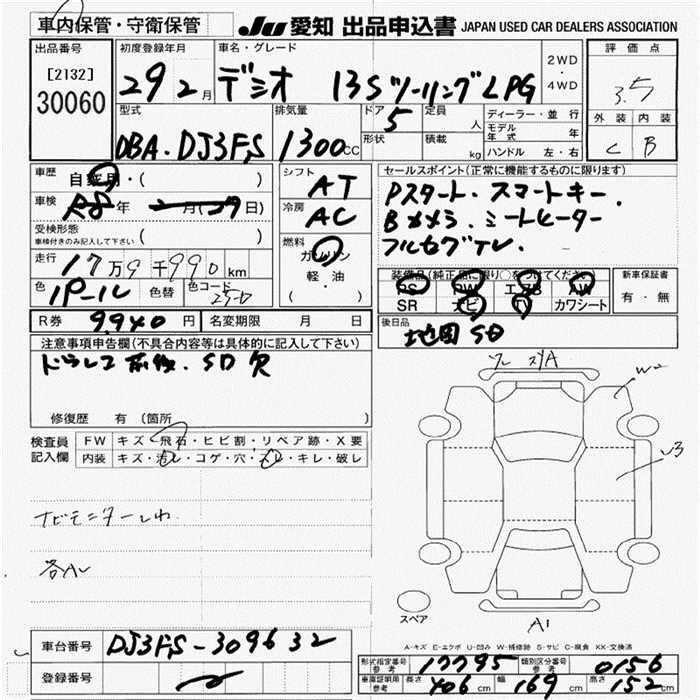 車内保管・守衛保管
JU 愛知 出品申込書 JAPAN USED CAR DEALERS ASSOCIATION
出品番号 初度登録年月 車名・グレード 2WD・4WD 評価点
[2132] 30060 29 2月 デミオ 13Sツーリング LPG 3.5
型式 排気量 ドア 定員 人 ディーラー・並行 外装 内装
DBA・DJ3FS 1300cc 5 形状 積載 kg モデル年式 年 C B
ハンドル 左・右
車歴 自家用・( ) シフト AT セールスポイント(正常に機能するものに限ります)
車検 R8年 月(29日) 冷房 AC Pスタート・スマートキー.
受検形態 車検付きのみ記入して下さい ( ) 燃料 ガソリン Bカメラ・シートヒーター
走行 17万9千990km 軽・油 ( ) フルセグTV.
色 1パール 色替 色コード 25-D 装備品(純正品に限り○をつけてください) 新車保証書
PS PW エアB AW 有・無
SR ナビ TV カワシート
R券 9,940円 名変期限 月 日 後日品 地図SD
注意事項申告欄(不具合内容等は具体的に記入して下さい)
ドラレコ前後・SD欠
修復歴 有 (箇所 )
検査員記入欄 FW キズ・飛石・ヒビ割・リペア跡・X要
内装 キズ・汚レ・コゲ・穴・スレ・キレ・破レ
W2
U3
ナビモニターしわ
各AL
スペア
A1
A-キズ E-エクボ U-凹み W-補修跡 S-サビ C-腐食 XX-交換済
車台番号 DJ3FS-309632
登録番号
形式指定番号 参考 17795 類別区分番号 参考 0156
車庫証明用 参考 長さ 406cm 幅 169cm 高さ 152cm